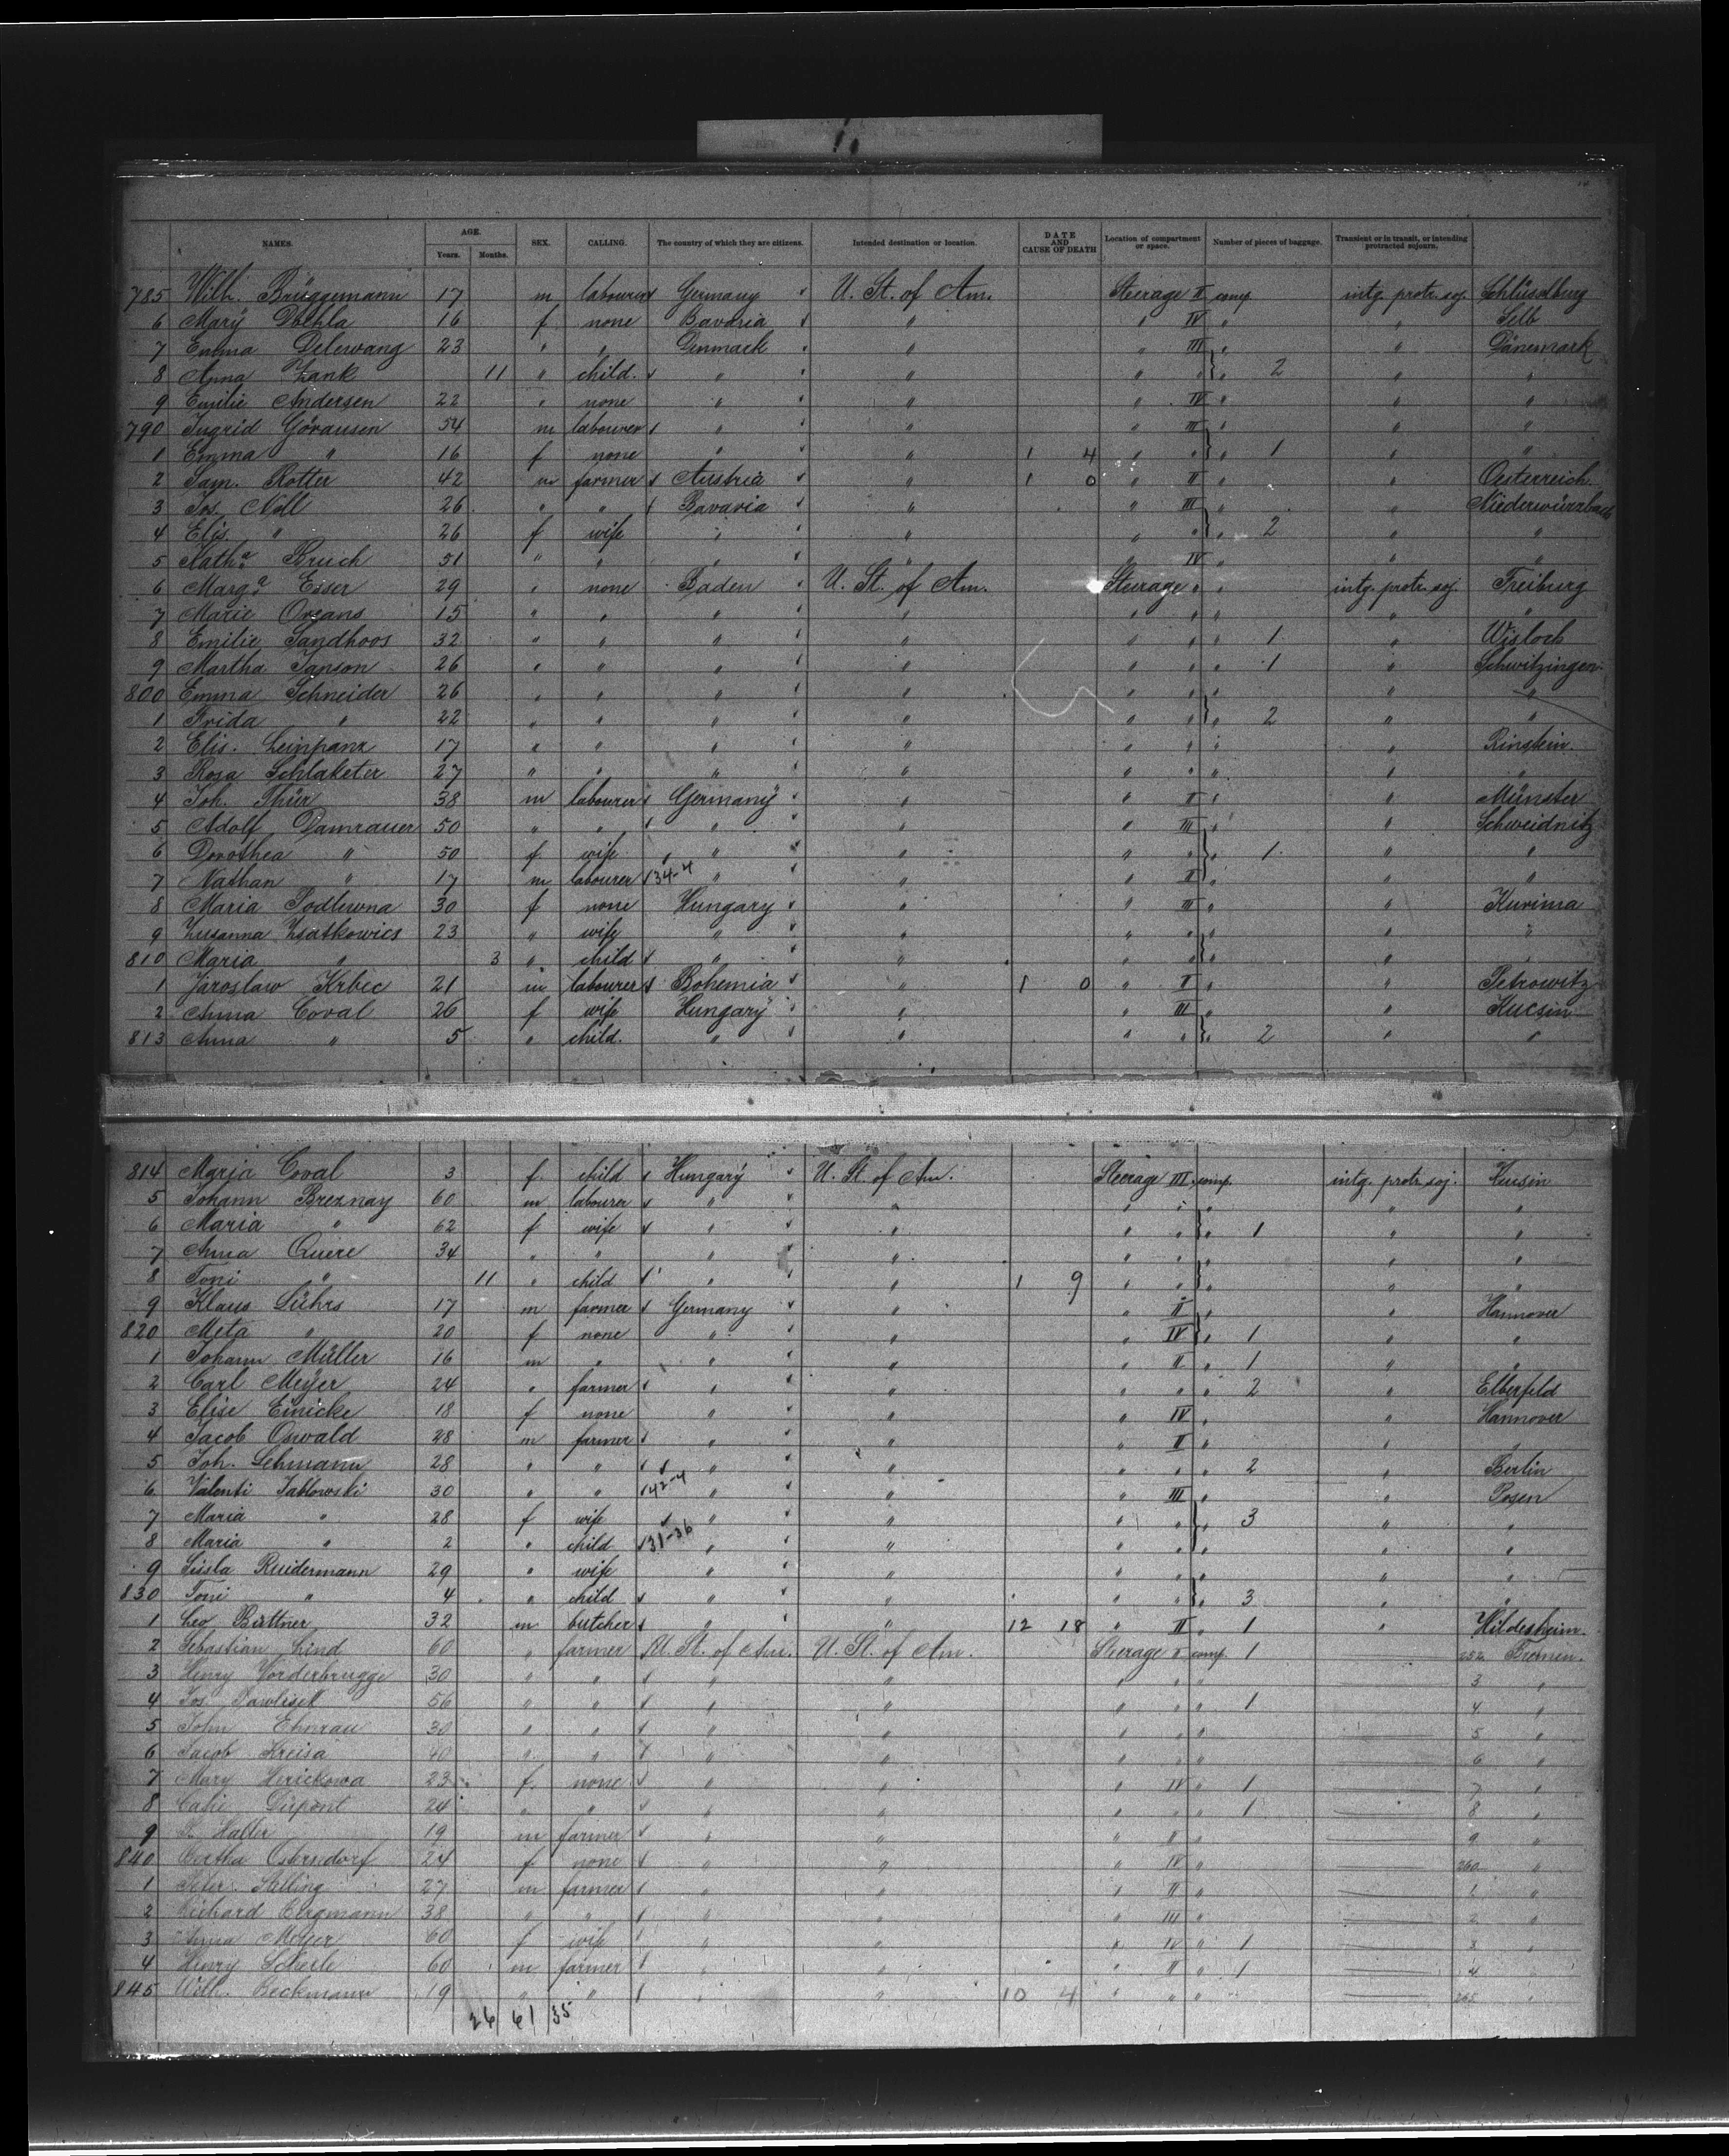 NAMES. AGE. Years. Months. SEX. CALLING. The country of which they are citizens. Intended destination or location. DATE AND CAUSE OF DEATH Location of compartment or space. Number of pieces of baggage. Transient or in transit, or intending protracted sojourn.
785 Wilh. Brüggemann 17 m labourer Germany U. St. of Am. Steerage II comp. intg. protr. soj. Schlüsselburg
6 Mary Doehla 16 f none Bavaria " " IV " " Selb
7 Emma Delewang 23 " " Denmark " " III " " Dänemark
8 Anna Zank 11 " child " " " " " 2 " "
9 Emilie Andersen 22 " none " " " IV " " "
790 Ingrid Göransen 54 m labourer " " " III " " "
1 Emma " 16 f none " " 1 4 " " " 1 " "
2 Sam. Rotter 42 m farmer Austria " 1 0 " II " " Oesterreich
3 Jos. Noll 26 " " Bavaria " " III " " Niederwürzbach
4 Elis. " 26 f wife " " " " " 2 " "
5 Katha Bruch 51 " " " " " IV " " "
6 Marga Esser 29 " none Baden U. St. of Am. Steerage " " intg. protr. soj. Freiburg
7 Marie Oreans 15 " " " " " " " " "
8 Emilie Sandhoos 32 " " " " " " " 1 " Wisloch
9 Martha Janson 26 " " " " " " " 1 " Schwitzingen
800 Emma Schneider 26 " " " " " " " " "
1 Frida " 22 " " " " " " " 2 " "
2 Elis. Leinpanz 17 " " " " " " " " Rinstein
3 Rosa Schlaketer 27 " " " " " " " " "
4 Joh. Thür 38 m labourer Germany " " II " " Münster
5 Adolf Damrauer 50 " " " " " III " " Schweidnitz
6 Dorothea " 50 f wife " " " " " 1 " "
7 Nathan " 17 m labourer 34-4 " " " II " " "
8 Maria Podlewna 30 f none Hungary " " III " " Kurima
9 Zusanna Zsatkowics 23 " wife " " " " " " "
810 Maria " 3 " child " " " " " " "
1 Jaroslaw Krbec 21 m labourer Bohemia " 1 0 " II " " Petrowitz
2 Anna Coval 26 f wife Hungary " " III " " Kucsin
813 Anna " 5 " child. " " " " " 2 " "
814 Maria Coval 3 f child Hungary U. St. of Am. Steerage III comp. intg. protr. soj. Kusin
5 Johann Breznay 60 m labourer " " " " " " "
6 Maria " 62 f wife " " " " " 1 " "
7 Anna Quere 34 " " " " " " " " "
8 Toni " 11 " child " " 1 9 " " " " "
9 Klaus Lührs 17 m farmer Germany " " II " " Hannover
820 Meta " 20 f none " " " IV " 1 " "
1 Johann Müller 16 m " " " " II " 1 " "
2 Carl Meyer 24 " farmer " " " " " 2 " Elberfeld
3 Elise Einicke 18 f none " " " IV " " Hannover
4 Jacob Oswald 28 m farmer " " " II " " "
5 Joh. Lehmann 28 " " " " " " " 2 " Berlin
6 Valenti Jablowski 30 " " 142-4 " " " III " " Posen
7 Maria " 28 f wife " " " " " 3 " "
8 Maria " 2 " child 31-36 " " " " " " "
9 Sissla Ruidermann 29 " wife " " " " " " "
830 Toni " 4 " child " " " " " 3 " "
1 Leo Büttner 32 m butcher " " 12 18 " II " 1 " Hildesheim.
2 Sebastian Lind 60 " farmer U. St. of Am. U. St. of Am. Steerage II comp. 1 252 Bremen.
3 Henry Vorderbrugge 30 " " " " " " " 3 "
4 Jos. Pawlisek 56 " " " " " " " 1 4 "
5 John Ehnrau 30 " " " " " " " 5 "
6 Jacob Kreisa 40 " " " " " " " 6 "
7 Mary Herickowa 23 f. none " " " IV " 1 7 "
8 Dupont 24 " " " " " " " 1 8 "
9 Haller 19 m farmer " " " II " 9 "
840 Bertha Ostersdorf 24 f none " " " IV " 260 "
1 Peter Stelling 27 m farmer " " " II " 1 "
2 Richard Bergmann 38 " " " " " III " 2 "
3 Anna Meyer 60 f wife " " " IV " 1 3 "
4 Henry Scheele 60 m farmer " " " II " 1 4 "
845 Wilh. Beckmann 19 " " " " 10 4 " " " 265 "
26 61 35